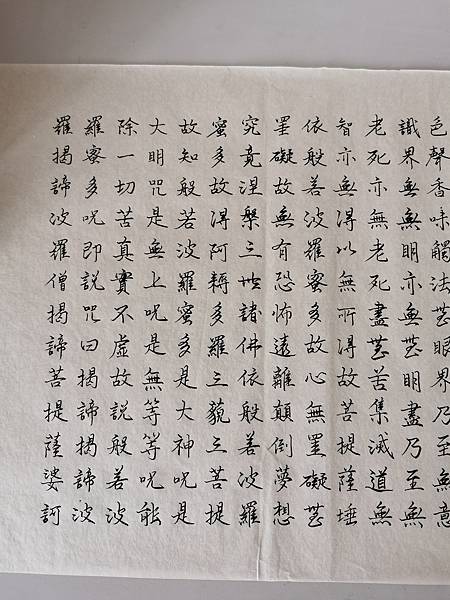 色聲香味觸法無眼界乃至無意
識界無無明亦無無明盡乃至無
老死亦無老死盡無苦集滅道無
智亦無得以無所得故菩提薩埵
依般若波羅蜜多故心無罣礙無
罣礙故無有恐怖遠離顛倒夢想
究竟涅槃三世諸佛依般若波羅
蜜多故得阿耨多羅三藐三菩提
故知般若波羅蜜多是大神咒是
大明咒是無上咒是無等等咒能
除一切苦真實不虛故說般若波
羅蜜多咒即說咒曰揭諦揭諦波
羅揭諦波羅僧揭諦菩提薩婆訶